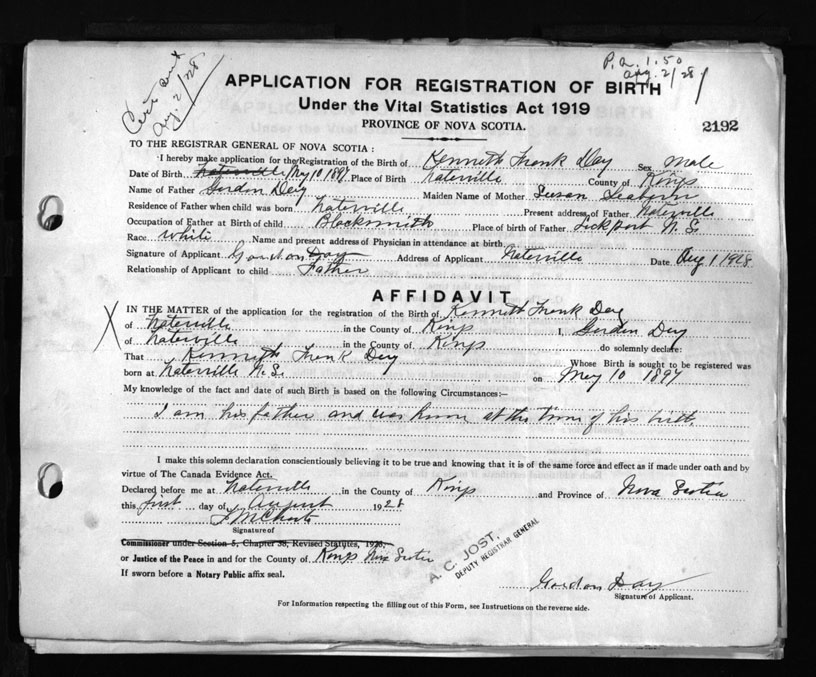 Cert sent
Aug. 2/28
P.N. 1.50
Aug. 2/28
APPLICATION FOR REGISTRATION OF BIRTH
Under the Vital Statistics Act 1919
PROVINCE OF NOVA SCOTIA.
2192
TO THE REGISTRAR GENERAL OF NOVA SCOTIA :
I hereby make application for the Registration of the Birth of Kenneth Frank Day Sex Male
Date of Birth May 10 1897 Place of Birth Waterville County of Kings
Name of Father Gordon Day Maiden Name of Mother Susan
Residence of Father when child was born Waterville Present address of Father Waterville
Occupation of Father at Birth of child Blacksmith Place of birth of Father Lockport N.S.
Race White Name and present address of Physician in attendance at birth
Signature of Applicant Gordon Day Address of Applicant Waterville Date Aug 1 1928
Relationship of Applicant to child Father
AFFIDAVIT
X
IN THE MATTER of the application for the registration of the Birth of Kenneth Frank Day
of Waterville in the County of Kings I, Gordon Day
of Waterville in the County of Kings do solemnly declare:
That Kenneth Frank Day Whose Birth is sought to be registered was
born at Waterville N.S. on May 10 1897
My knowledge of the fact and date of such Birth is based on the following Circumstances:—
I am his father and was home at the time of his birth.
I make this solemn declaration conscientiously believing it to be true and knowing that it is of the same force and effect as if made under oath and by
virtue of The Canada Evidence Act.
Declared before me at Waterville in the County of Kings and Province of Nova Scotia
this first day of August 1928
Signature of
Commissioner under Section 5, Chapter 38, Revised Statutes, 1923,
or Justice of the Peace in and for the County of Kings Nova Scotia
If sworn before a Notary Public affix seal.
A. C. JOST,
DEPUTY REGISTRAR GENERAL
Gordon Day
Signature of Applicant.
For Information respecting the filling out of this Form, see Instructions on the reverse side.